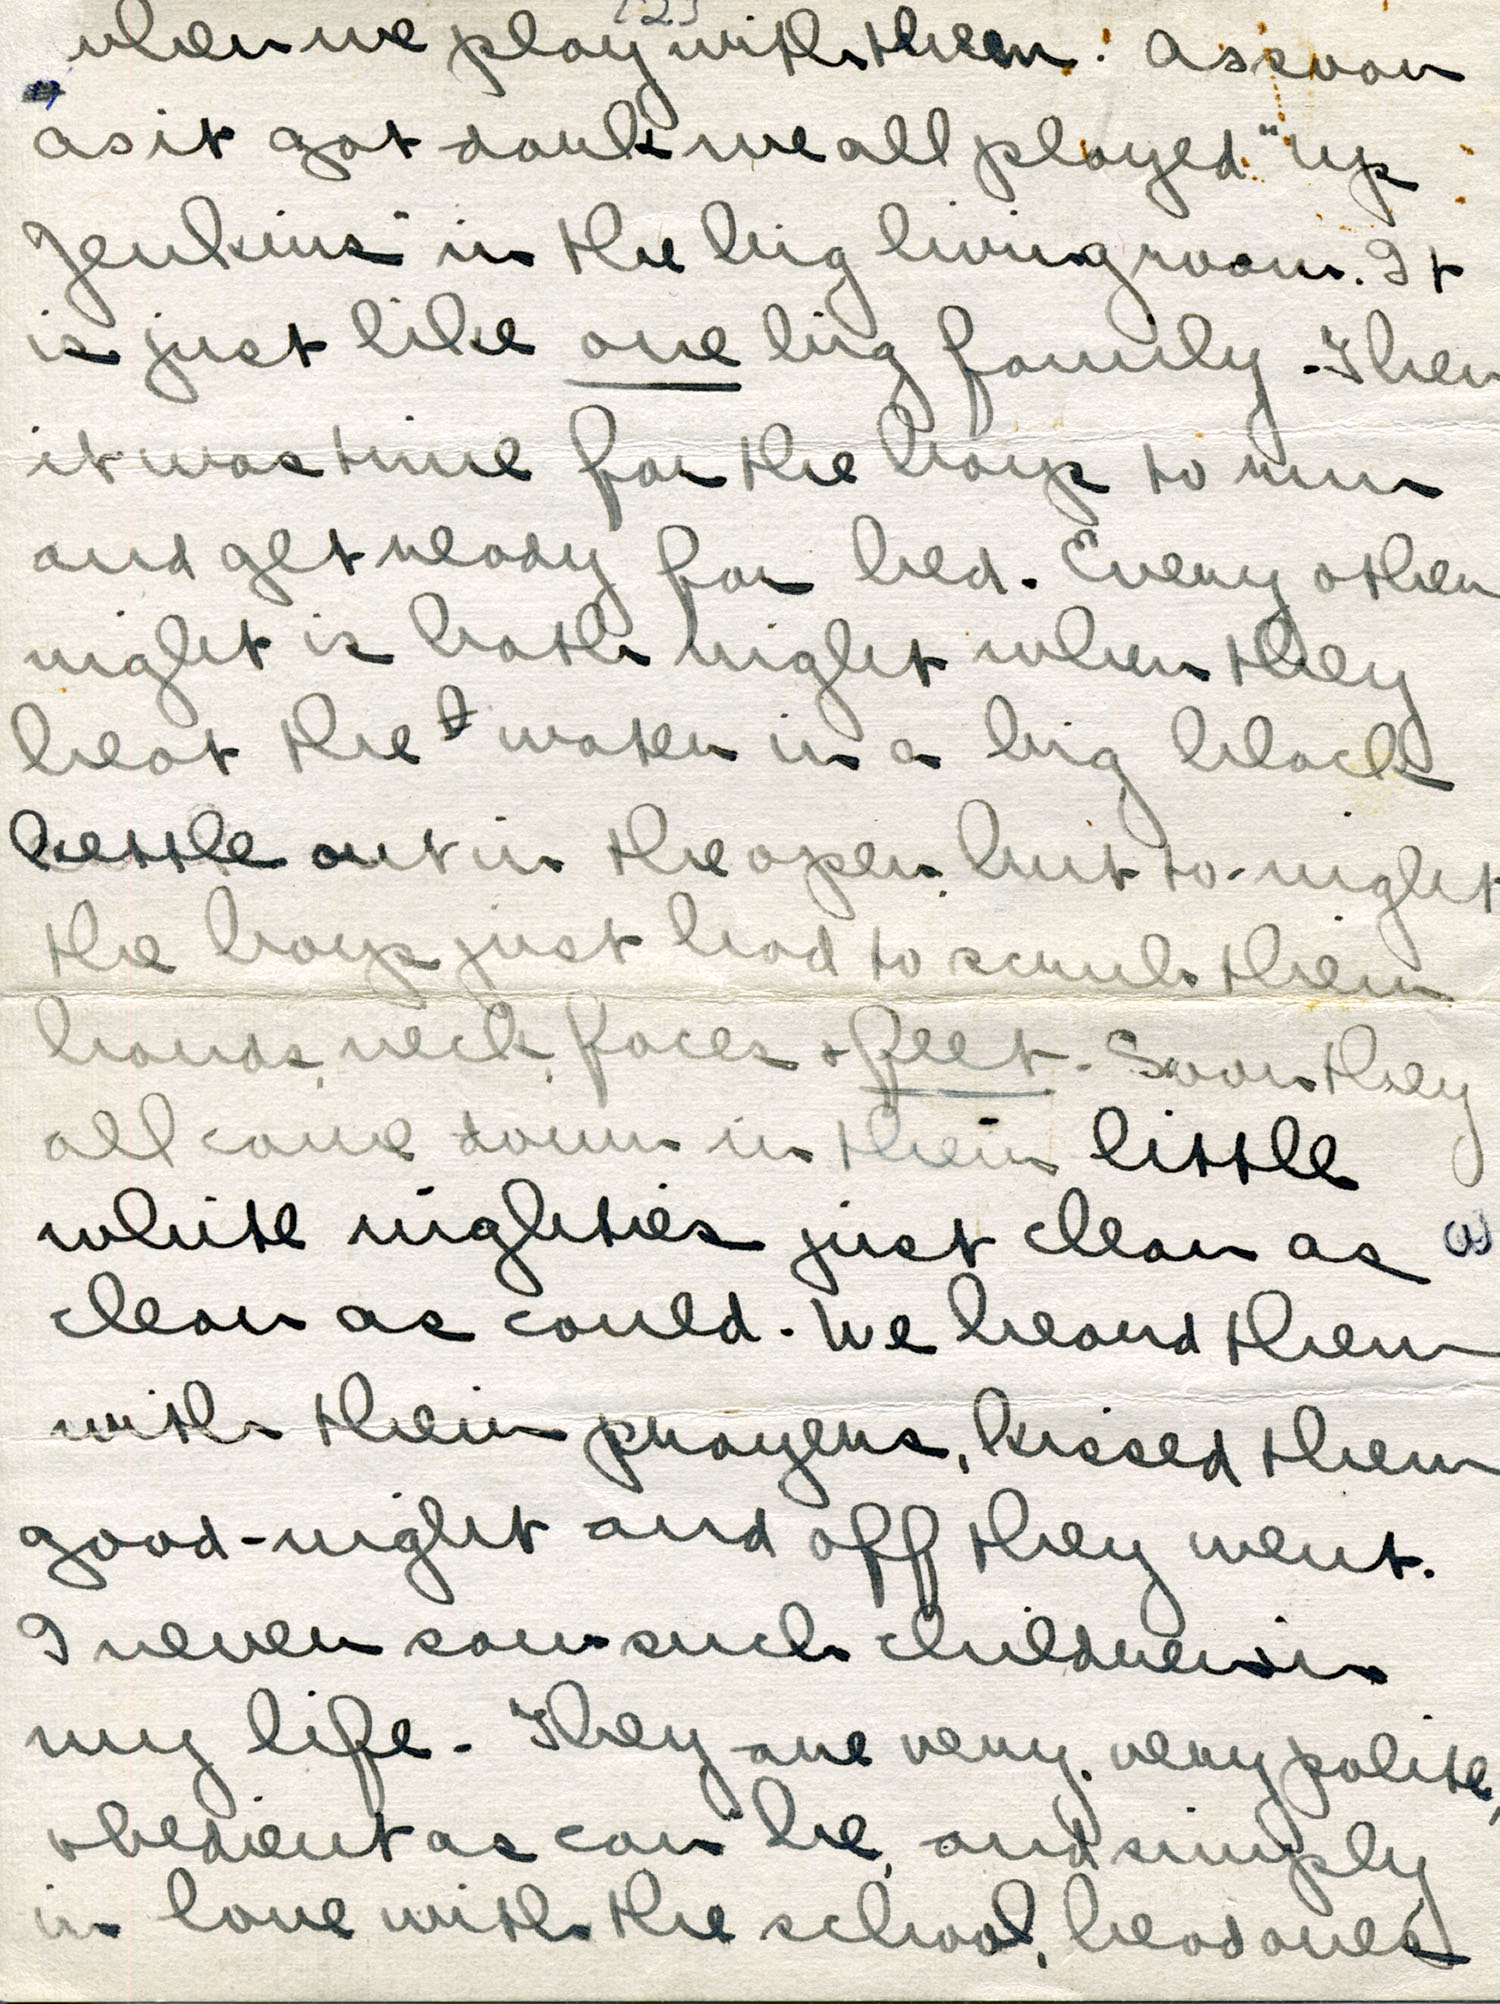 (2)
when we play with them. As soon
as it got dark we all played "up
Jenkins" in the big living room. It
is just like one big family. Then
it was time for the boys to run
and get ready for bed. Every other
night is bath night when they
heat the water in a big black
kettle out in the open, but to-night
the boys just had to scrub their
hands, neck, faces + feet. Soon they
all came down in their little
white nighties just clean as
clean as could. We heard them
with their prayers, kissed them
good-night and off they went.
I never saw such children in
my life. They are very, very polite,
obedient as can be, and simply
in love with the school, head over